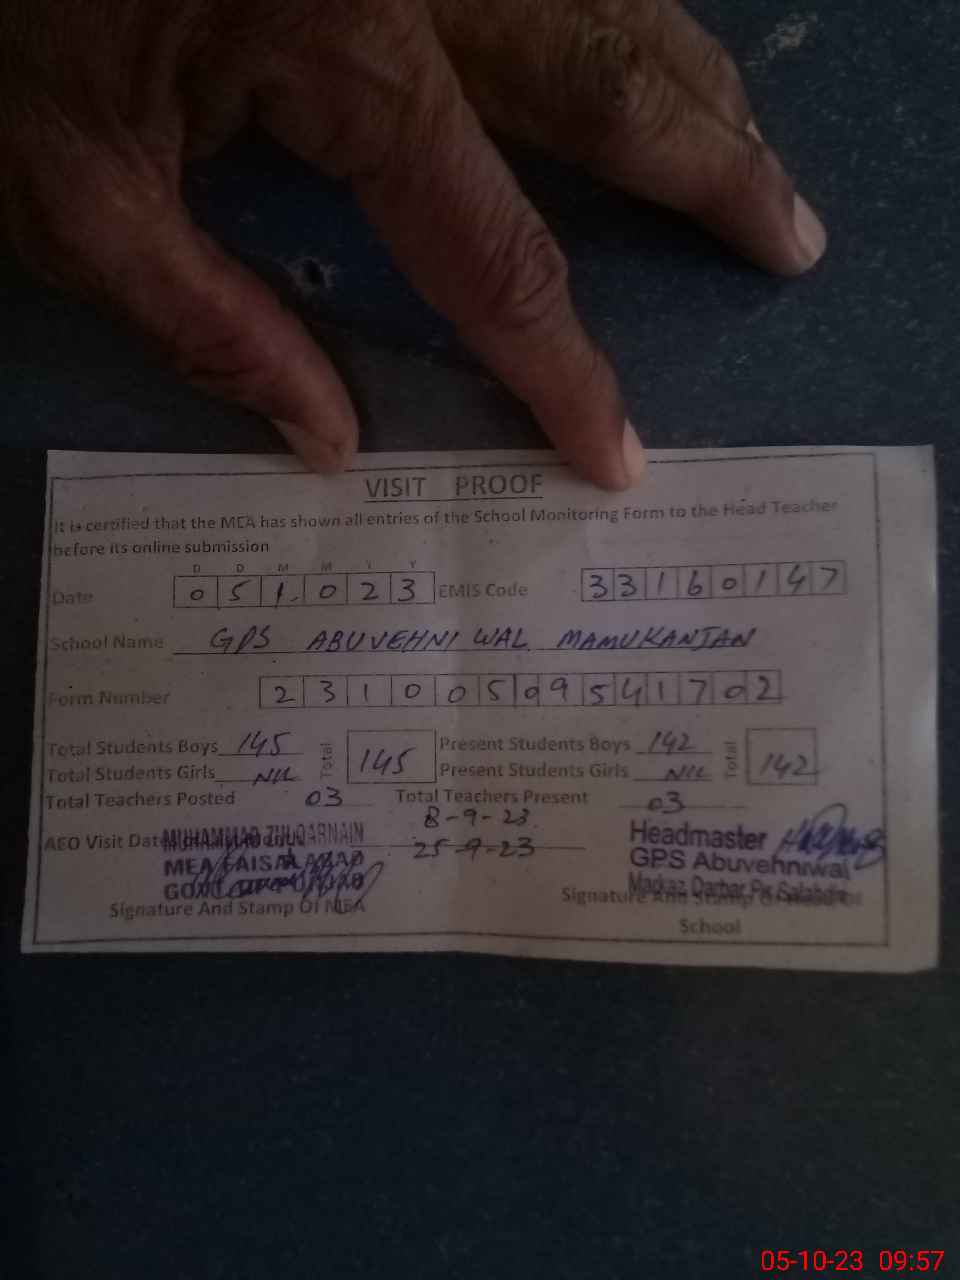 VISIT PROOF
It is certified that the MEA has shown all entries of the School Monitoring Form to the Head Teacher
before its online submission
D D M M Y Y
Date 0 5 1 0 2 3 EMIS Code 3 3 1 6 0 1 4 7
School Name GPS ABUVEHNI WAL MAMUKANJAN
Form Number 2 3 1 0 0 5 0 9 5 4 1 7 0 2
Total Students Boys 145 Total 145 Present Students Boys 142 Total 142
Total Students Girls NIL Present Students Girls NIL
Total Teachers Posted 03 Total Teachers Present 03
8-9-23
AEO Visit Date 25-9-23
MUHAMMAD ZULQARNAIN
MEA FAISALABAD
GOVT
Signature And Stamp Of MEA
Headmaster
GPS Abuvehniwal
Markaz Darbar Pir Salahdin
Signature And Stamp Of
School
05-10-23 09:57